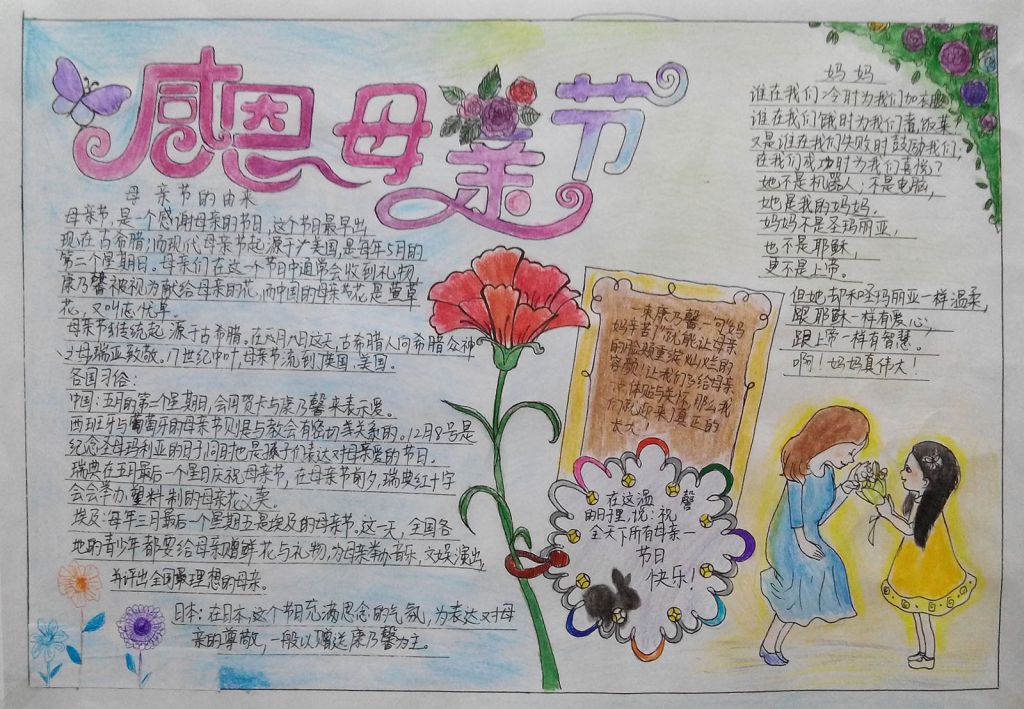 感恩母亲节
母亲节的由来
母亲节,是一个感谢母亲的节日,这个节日最早出
现在古希腊;而现代母亲节起源于美国,是每年5月的
第二个星期日。母亲们在这一个节日中通常会收到礼物,
康乃馨被视为献给母亲的花,而中国的母亲节花是萱草
花,又叫忘忧草。
母亲节传统起源于古希腊。在八月八日这天,古希腊人向希腊众神
之母瑞亚致敬。17世纪中叶,母亲节流到英国、美国。
各国习俗:
中国:五月的第二个星期日,会用贺卡与康乃馨来表示爱。
西班牙与葡萄牙的母亲节则是与教会有密切关系的。12月8号是
纪念圣母玛利亚的日子同时也是孩子们表达对母亲爱的节日。
瑞典在五月最后一个星日庆祝母亲节,在母亲节前夕,瑞典红十字
会会举办塑料制的母亲花义卖。
埃及:每年三月最后一个星期五是埃及的母亲节,这一天,全国各
地的青少年都要给母亲赠鲜花与礼物,为母亲举办音乐、文娱演出,
并评出全国最理想的母亲。
日本:在日本,这个节日充满思念的气氛,为表达对母
亲的尊敬,一般以赠送康乃馨为主。
一束康乃馨,一句“妈
妈辛苦了”就能让母亲
的脸颊重绽灿烂的
容颜!让我们多给母亲
一点体贴与关怀,那么我
们就迎来了真正的
太太!
在这温馨
的日子里,说:祝
全天下所有母亲一
节日
快乐!
妈妈
谁在我们冷时为我们加衣服?
谁在我们饿时为我们煮饭菜?
又是谁在我们失败时鼓励我们,
在我们成功时为我们喜悦?
她不是机器人;不是电脑,
她是我的妈妈。
妈妈不是圣玛丽亚,
也不是耶稣,
更不是上帝。
但她却和圣玛丽亚一样温柔,
跟耶稣一样有爱心;
跟上帝一样有智慧。
啊!妈妈真伟大!